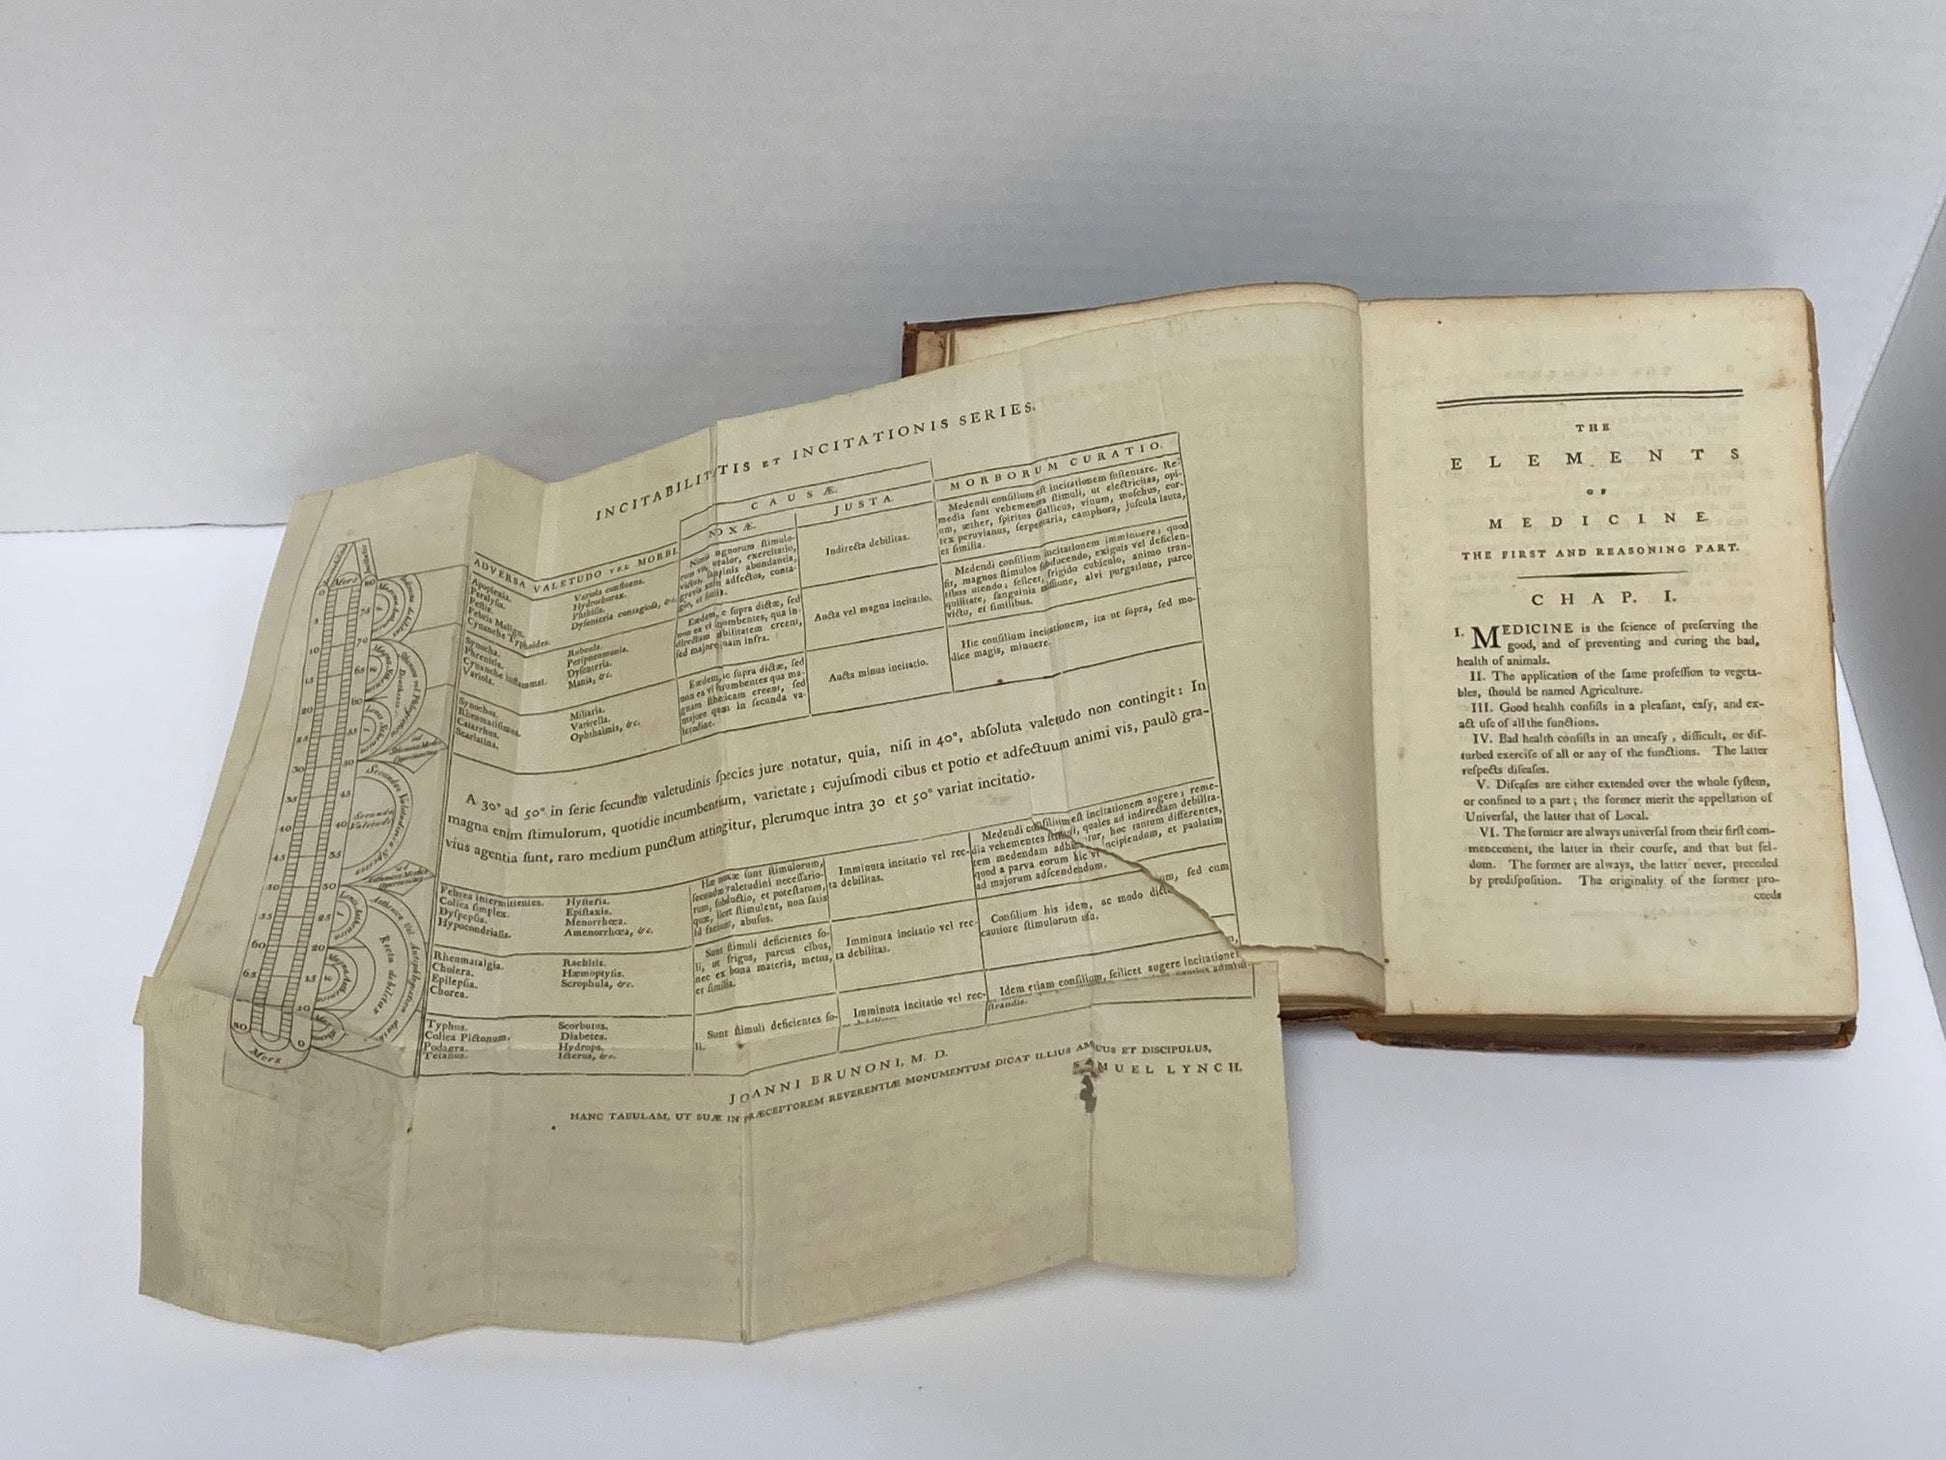 INCITABILITATIS ET INCITATIONIS SERIES.
ADVERSA VALETUDO VEL MORBI
CAUSÆ.
NOXÆ.
JUSTA.
MORBORUM CURATIO.
Apoplexia.
Paralysis.
Pestis.
Febris Malign.
Cynanche Typhoides.
Variola confluens.
Hydrothorax.
Phthisis.
Dysenteria contagiosa, &c.
Indirecta debilitas.
Medendi conſilium eſt incitationem ſuſtentare. Re-
media ſunt vehementes ſtimuli, ut electricitas, opi-
um, æther, ſpiritus Gallicus, vinum, moſchus, cor-
tex peruvianus, ſerpentaria, camphora, juſcula lauta,
et ſimilia.
Synocha.
Phrenitis.
Cynanche inflammat.
Variola.
Rubeola.
Peripneumonia.
Dyſenteria.
Mania, &c.
Eædem, ſupra dictæ, ſed
non ea vi incumbentes, qua in-
directam debilitatem creent,
ſed majore quam infra.
Aucta vel magna incitatio.
Medendi conſilium incitationem imminuere; quod
fit, magnos ſtimulos ſubducendo, exiguis vel deficien-
tibus utendo; ſcilicet, frigido cubiculo, animo tran-
quillitate, ſanguinis miſſione, alvi purgatione, parco
victu, et ſimilibus.
Synochus.
Rheumatiſmus.
Catarrhus.
Scarlatina.
Miliaria.
Varicella.
Ophthalmis, &c.
Eædem, ſupra dictæ, ſed
non ea vi incumbentes qua ma-
gnam ſthenicam creent, ſed
majore quam in ſecunda va-
letudine.
Aucta minus incitatio.
Hic conſilium incitationem, ita ut ſupra, ſed mo-
dice magis, minuere.
A 30° ad 50° in ſerie ſecundæ valetudinis ſpecies jure notatur, quia, niſi in 40°, abſoluta valetudo non contingit: In
magna enim ſtimulorum, quotidie incumbentium, varietate; cujuſmodi cibus et potio et adfectuum animi vis, paulò gra-
vius agentia ſunt, raro medium punctum attingitur, plerumque intra 30 et 50° variat incitatio.
Febres intermittentes.
Colica ſimplex.
Dyſpepſia.
Hypocondriaſis.
Hyſteria.
Epiſtaxis.
Menorrhœa.
Amenorrhœa, &c.
Hæ noxæ ſunt ſtimulorum,
ſecundæ valetudini neceſſario-
rum, ſubductio, et poteſtatum,
quæ, licet ſtimulent, non ſatis
id faciunt, abuſus.
Imminuta incitatio vel rec-
ta debilitas.
Medendi conſilium eſt incitationem augere; reme-
dia vehementes ſtimuli, quales ad indirectam debilita-
tem medendam adhibentur, hoc tantum differentes,
quod a parva eorum hic vi incipiendum, et paulatim
ad majorum adſcendendum.
Rheumatalgia.
Cholera.
Epilepſia.
Chorea.
Rachitis.
Hæmoptyſis.
Scrophula, &c.
Sunt ſtimuli deficientes ſo-
li, ut frigus, parcus cibus,
nec ex bona materia, metus,
et ſimilia.
Imminuta incitatio vel rec-
ta debilitas.
Conſilium his idem, ac modo ſed cum
cautiore ſtimulorum uſu.
Typhus.
Colica Pictonum.
Podagra.
Tetanus.
Scorbutus.
Diabetes.
Hydrops.
Icterus, &c.
Sunt ſtimuli deficientes ſo-
li.
Imminuta incitatio vel rec-
Idem etiam conſilium, ſcilicet augere incitationem,
ſtrandis.
JOANNI BRUNONI, M. D.
HANC TABULAM, UT SUÆ IN PRÆCEPTOREM REVERENTIÆ MONUMENTUM DICAT ILLIUS AMICUS ET DISCIPULUS,
SAMUEL LYNCH.
Mors
0
5
10
15
20
25
30
35
40
45
50
55
60
65
80
Mors
80
75
70
65
60
50
45
40
35
30
25
20
15
10
0
Secunda
Valetudo
Recta debilitas
THE
ELEMENTS
OF
MEDICINE
THE FIRST AND REASONING PART.
CHAP. I.
I. MEDICINE is the ſcience of preſerving the
good, and of preventing and curing the bad,
health of animals.
II. The application of the ſame profeſſion to vegeta-
bles, ſhould be named Agriculture.
III. Good health conſiſts in a pleaſant, eaſy, and ex-
act uſe of all the functions.
IV. Bad health conſiſts in an uneaſy, difficult, or diſ-
turbed exerciſe of all or any of the functions. The latter
reſpects diſeaſes.
V. Diſeaſes are either extended over the whole ſyſtem,
or confined to a part; the former merit the appellation of
Univerſal, the latter that of Local.
VI. The former are always univerſal from their firſt com-
mencement, the latter in their courſe, and that but ſel-
dom. The former are always, the latter never, preceded
by prediſpoſition. The originality of the former pro-
ceeds